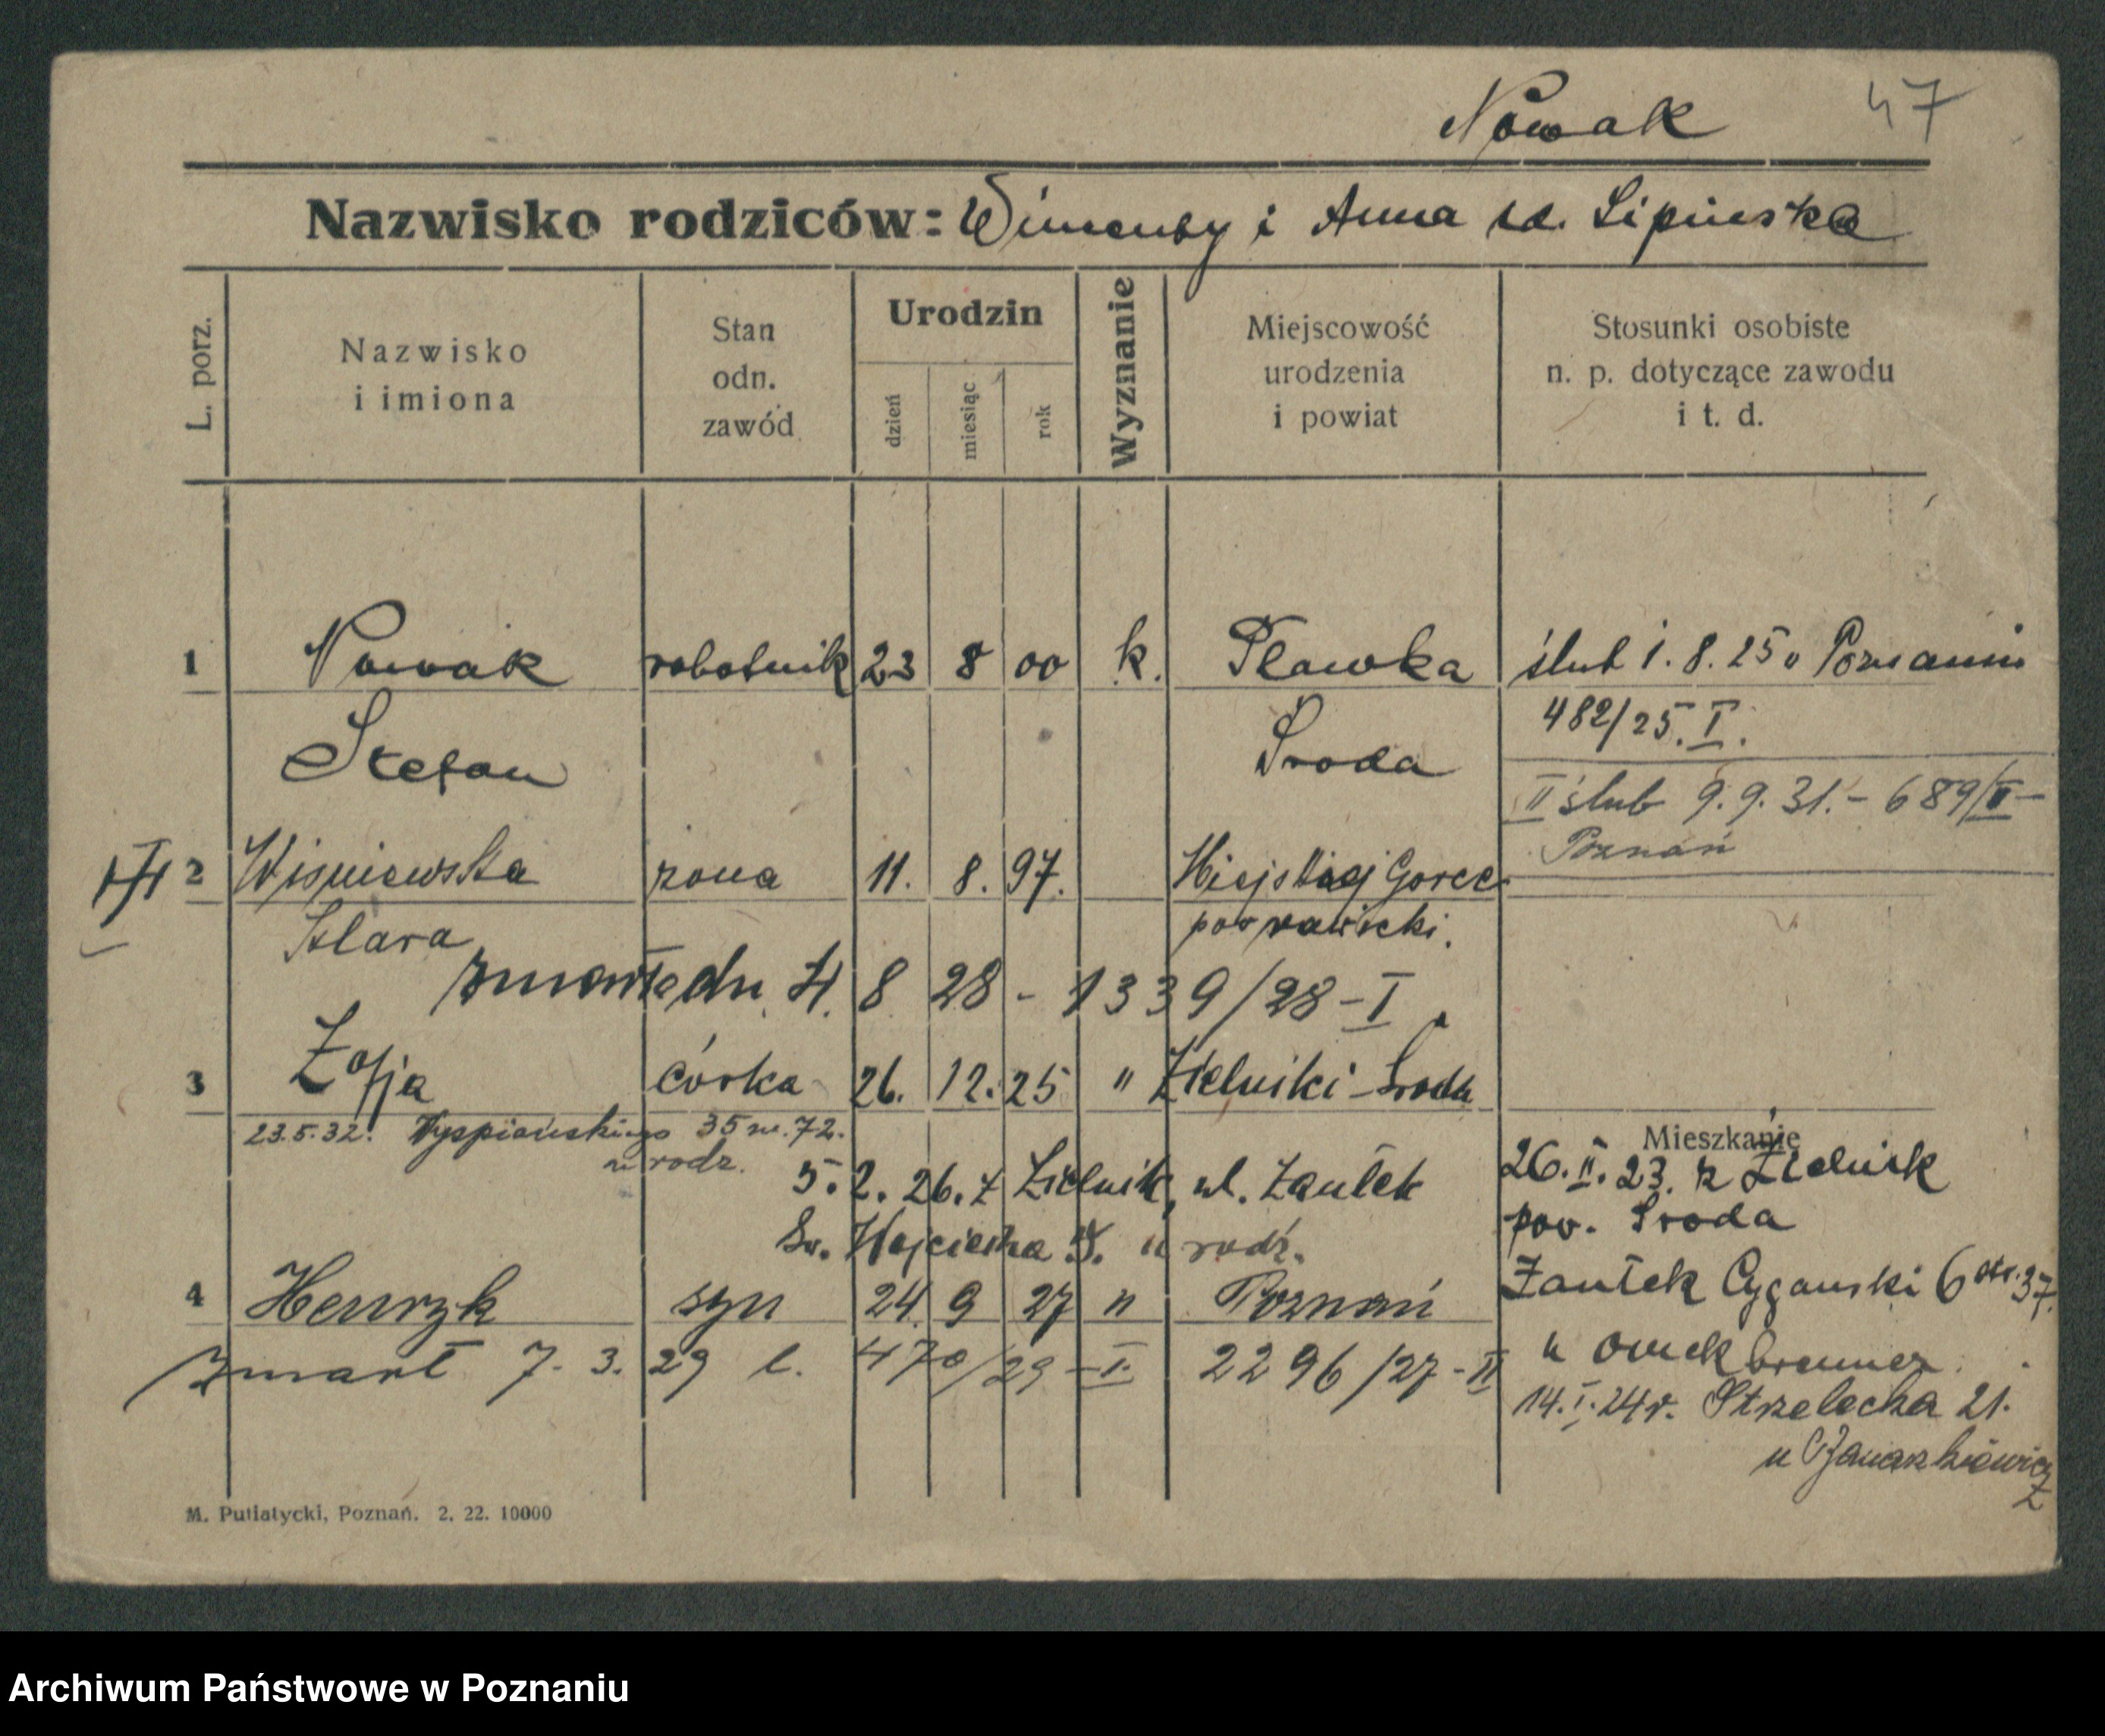 Nowak 47
Nazwisko rodziców: Wincenty i Anna zd. Lipinska
L. porz.
Nazwisko
i imiona
Stan
odn.
zawód
Urodzin
dzień
miesiąc
rok
Wyznanie
Miejscowość
urodzenia
i powiat
Stosunki osobiste
n. p. dotyczące zawodu
i t. d.
1 Nowak robotnik 23 8 00 k. Pławka ślub 1. 8. 25 v Poznaniu
482/25. I.
Stefan Sroda
II ślub 9. 9. 31. - 689/II -
Poznań
2 Wisniewska zona 11. 8. 97. Miejskiej Gorce
Klara pow rawicki.
zmarła dn. 4. 8 28 - 1339/28 - I
3 Zofja córka 26. 12. 25 " Zielniki - Sroda
23.5.32. Wyspiańskiego 35 m. 72.
u rodz.
Mieszkanie
5. 2. 26. z Zielnik, ul. Zaułek
26. II. 23. z Zielnik
Sw. Wojciecha 5. u rodz.
pow. Sroda
4 Henryk syn 24. 9 27 " Poznań
Zaułek Cyganski 6 37.
zmarł 7. 3. 29 l. 470/29 - I. 2296/27 - II
u
14. I. 24 r. Strzelecka 21.
u Banaszkiewicz
M. Putiatycki, Poznań. 2. 22. 10000
Archiwum Państwowe w Poznaniu